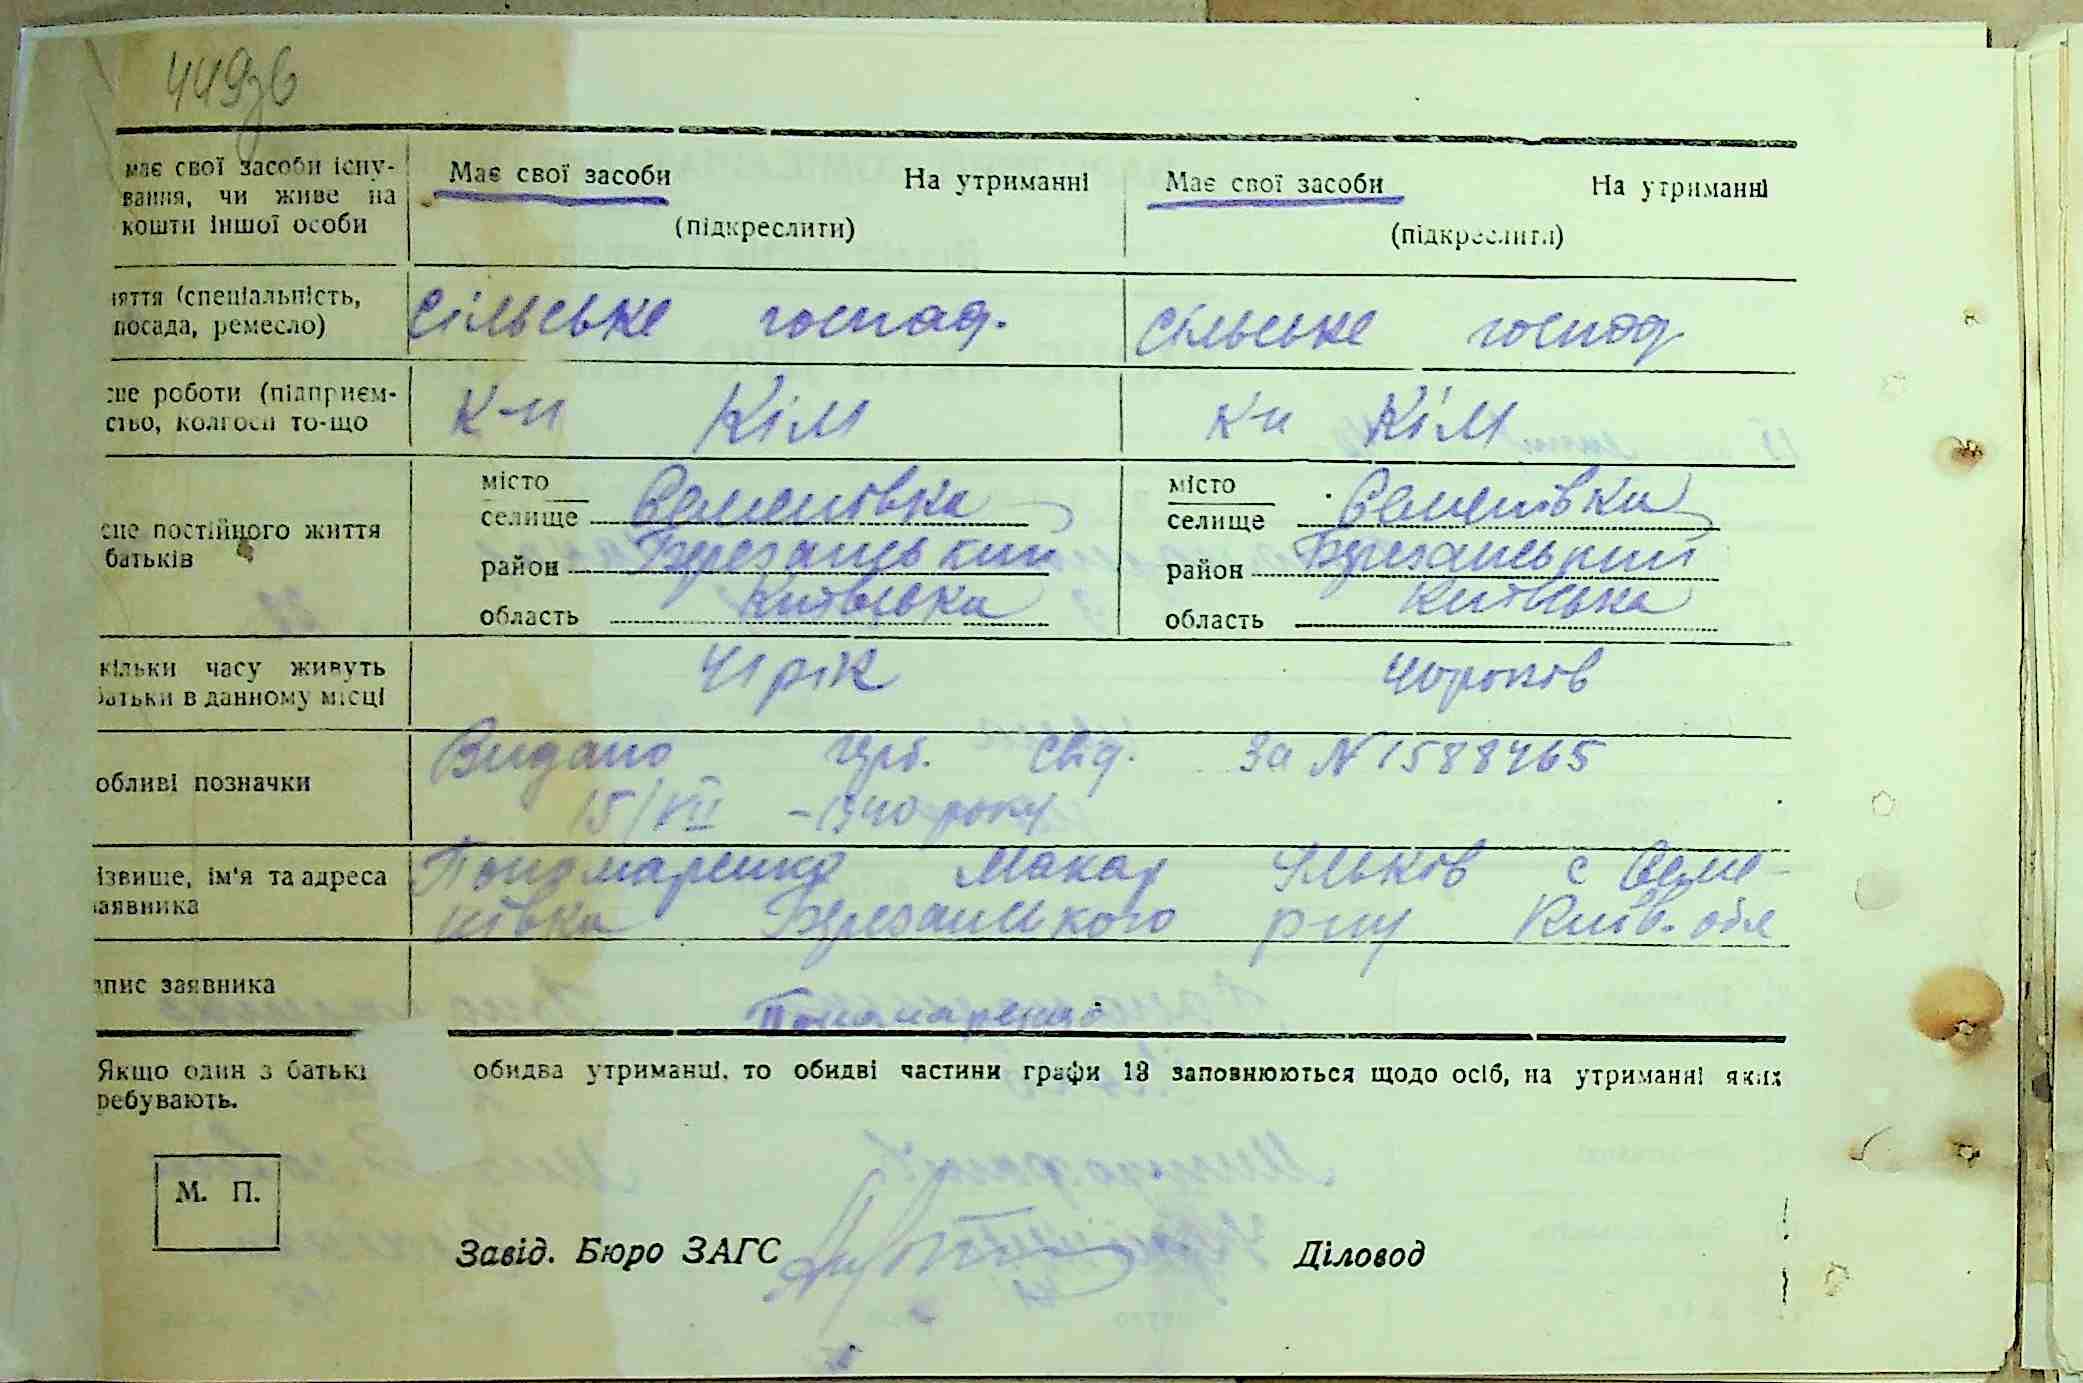 449зв
має свої засоби існу- Має свої засоби На утриманні Має свої засоби На утриманні
вання, чи живе на
кошти іншої особи (підкреслити) (підкреслити)
няття (спеціальність, сільське господ. сільське господ
посада, ремесло)
сце роботи (підприєм- К-п Кім к-п Кім
ство, колгосп то-що
місто місто
селище Семенівка селище Семенівка
сце постійного життя
батьків
район Березанський район Березанський
область Київська область Київська
кільки часу живуть 41 рік 40 років
батьки в данному місці
обливі позначки Видано гурб. свід. за № 1588465
15/VII -1940 року
ізвище, ім'я та адреса Пономаренко Макар Яльков с Семе-
заявника нівка Березанського р-ну Київ. обл
дпис заявника Пономаренко
Якщо один з батькі обидва утриманці, то обидві частини графи 13 заповнюються щодо осіб, на утриманні яких
ребувають.
М. П.
Завід. Бюро ЗАГС Діловод